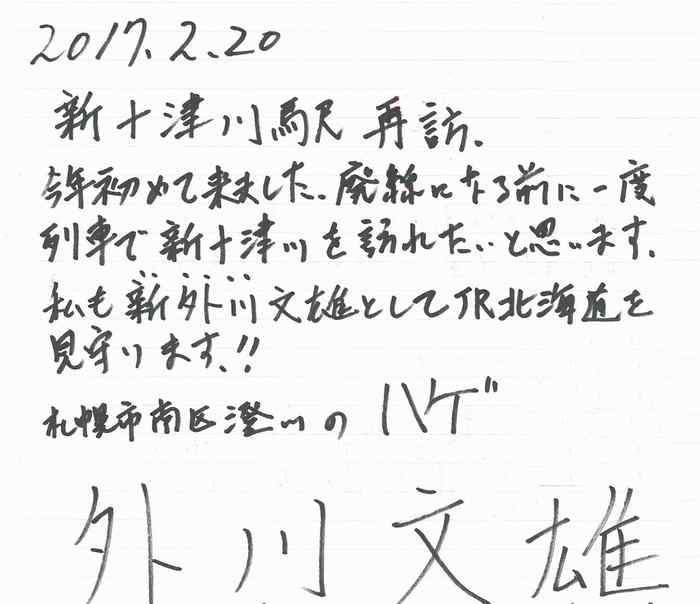 2017.2.20
新十津川駅 再訪.
今年初めて来ました.廃線になる前に一度
列車で新十津川を訪れたいと思います.
私も新外川文雄としてJR北海道を
見守ります.!!
札幌市南区澄川の ハゲ
外川文雄